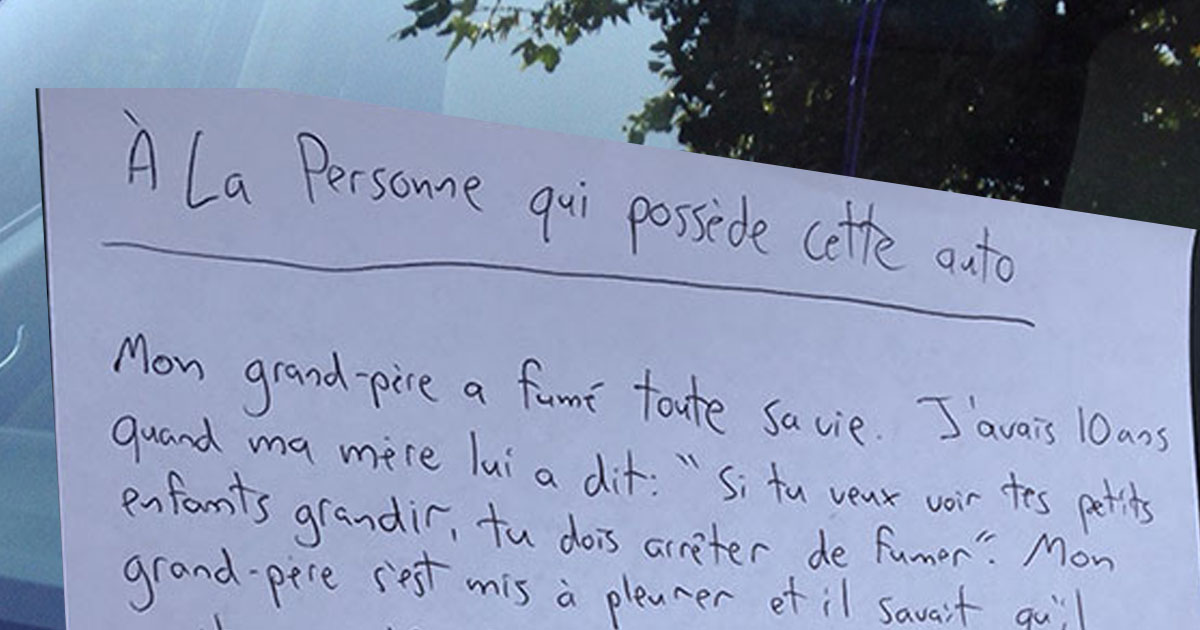 À La Personne qui possède cette auto
Mon grand-père a fumé toute sa vie. J'avais 10 ans
quand ma mère lui a dit: "Si tu veux voir tes petits
enfants grandir, tu dois arrêter de fumer". Mon
grand-père s'est mis à pleurer et il savait qu'il